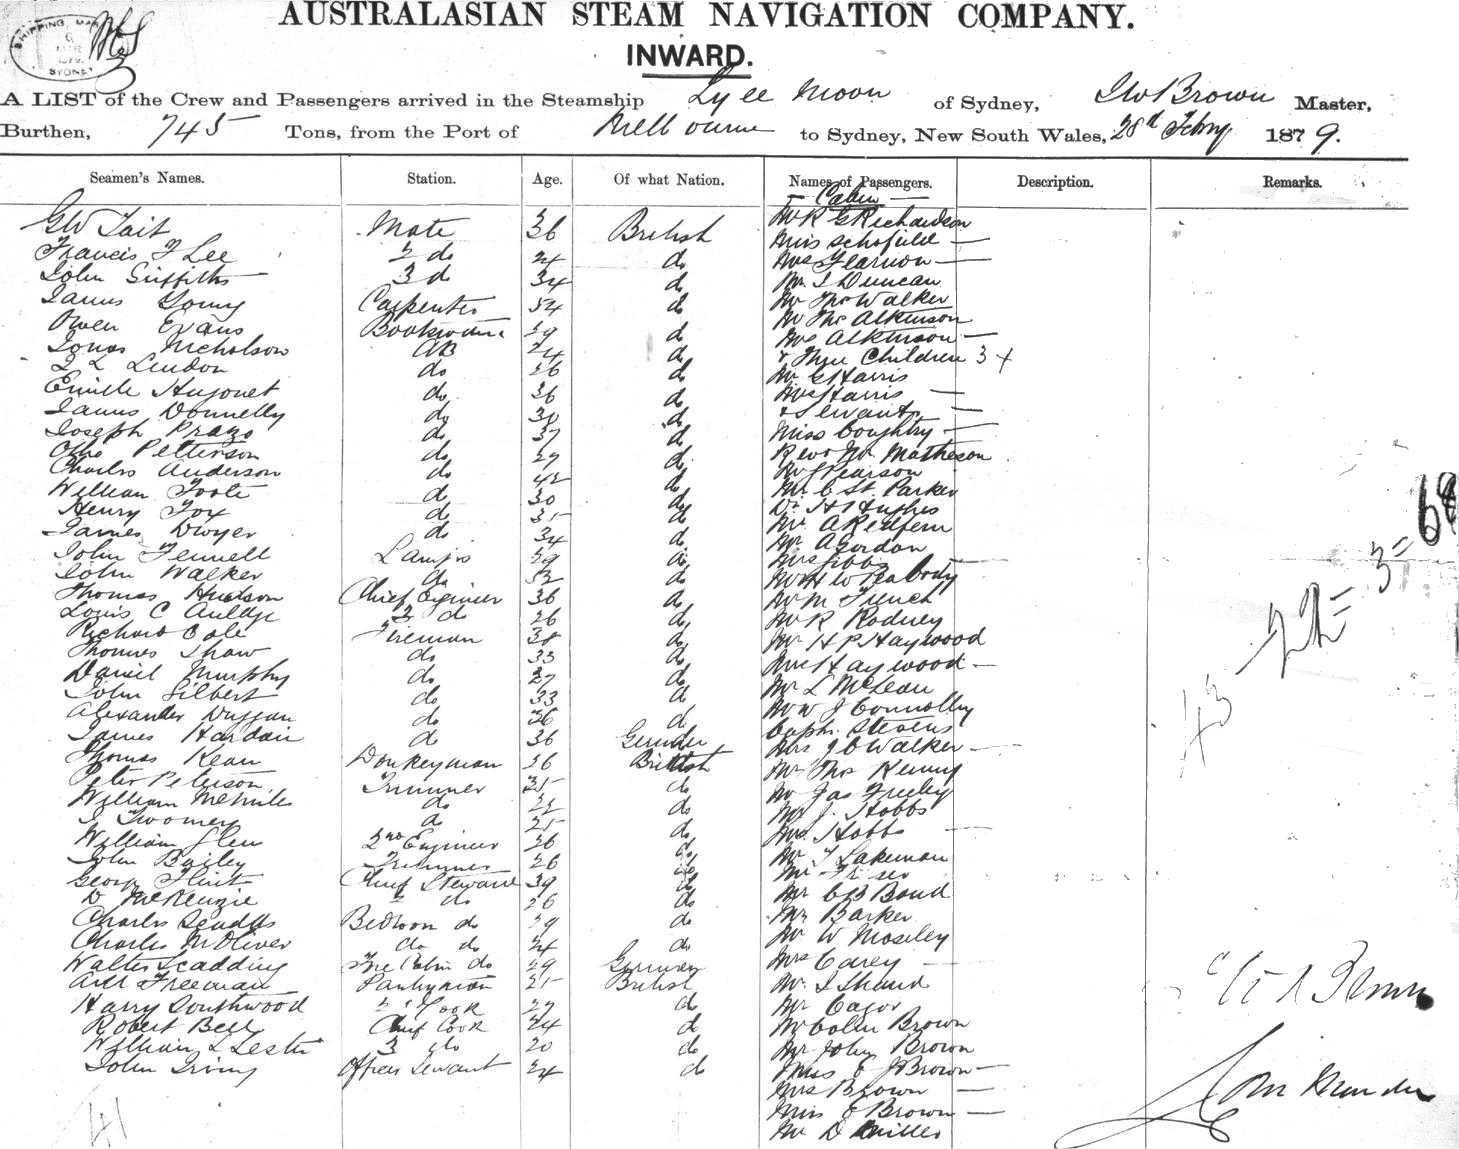 SHIPPING MAS
6
MAR
1879
SYDNEY
AUSTRALASIAN STEAM NAVIGATION COMPANY.
INWARD.
A LIST of the Crew and Passengers arrived in the Steamship Lyee Moon of Sydney, Brown Master,
Burthen, 745 Tons, from the Port of Melbourne to Sydney, New South Wales, 28th Febry 1879.
Seamen's Names. Station. Age. Of what Nation. Names of Passengers. Description. Remarks.
Cabin
GW Tait Mate 36 British
Francis F Lee 2 do 24 do
John Griffiths 3 d 34 do
James Young Carpenter 54 d
Owen Evans 29 d
Jonas Nicholson AB 24 d
Lindon do 36 d
Emille Hugonet do 36 d
James Donnelly do 30 d
Joseph Prazo do 37 d
Otto Petterson do 27 d
Charles Anderson do 42 d
William Foote do 30 d
Henry Fox do 35 d
James Dwyer do 34 d
John Fennell Lamps 29 do
John Walker do 52 do
Thomas Hudson Chief Engineer 36 do
Louis C 3 do 26 do
Richard Cole Fireman 38 do
Thomas Shaw do 33 do
Daniel Murphy do 27 do
John Gilbert do 33 d
Alexander Duggan do 36 d
James Hardair do 36 German
Thomas Kean Donkeyman 36 British
Peter Peterson Trimmer 35 do
William Melville do 22 do
J Twomey do 25 do
William Glen 2nd Engineer 26 do
John Bailey Trimmer 26 do
George Flint Chief Steward 39 do
D McKenzie 2 do 26 do
Charles Bedroom do 29 do
Charles McOliver do do 24 do
Walter Scadding Fore Cabin do 29 German
Arth Freeman Pantryman 25 British
Harry Southwood 2 Cook 27 do
Robert Bell Chief Cook 24 do
William L Lester 3 do 20 do
John Irving Officers Servant 24 do
41
Mr R G Richardson
Miss Schofield
Mrs Glearnon
Mr J Duncan
Mr Thos Walker
Mr Thos Atkinson
Mrs Atkinson
& Three Children 3 +
Mr G Harris
Mrs Harris
& Servant
Miss Coughtry
Revd Mr Matheson
Mr J Pearson
Mr C St Parker
Dr H Hughes
Mr A Redfern
Mr A Gordon
Mrs Gibbs
Mr H W Peabody
Mr M French
Mr R Rodney
Mr H P Haywood
Mrs Haywood
Mr L McLean
Mr W J Connolley
Capt. Stevens
Mrs J C Walker
Mr Thos Kenny
Mr Jas Freeley
Mr J. Hobbs
Mrs Hobbs
Mr T Lakeman
Mr Friser
Mr C B Bond
Mr Barker
Mr W Moseley
Mrs Carey
Mr J Shand
Mr Cagor
Mr Colin Brown
Mr John Brown
Miss E J Brown
Mrs Brown
Miss E Brown
Mr D Miller
43
3 =
Brown
Commander